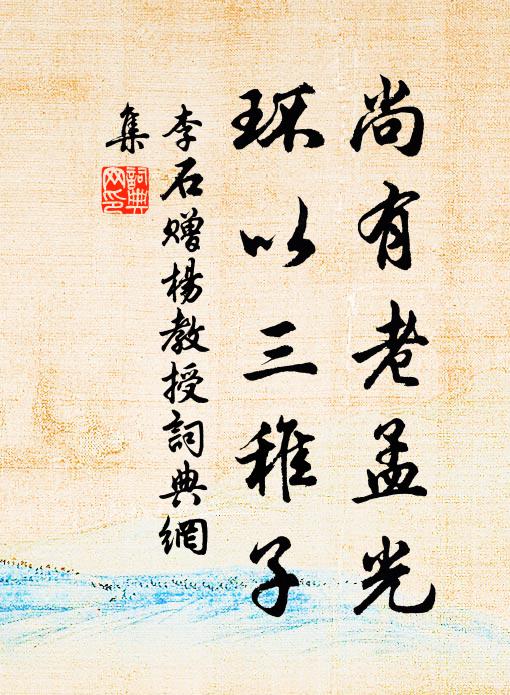 尚有老孟光
环以三稚子
李石赠杨教授詞典網
集
詞典
网印